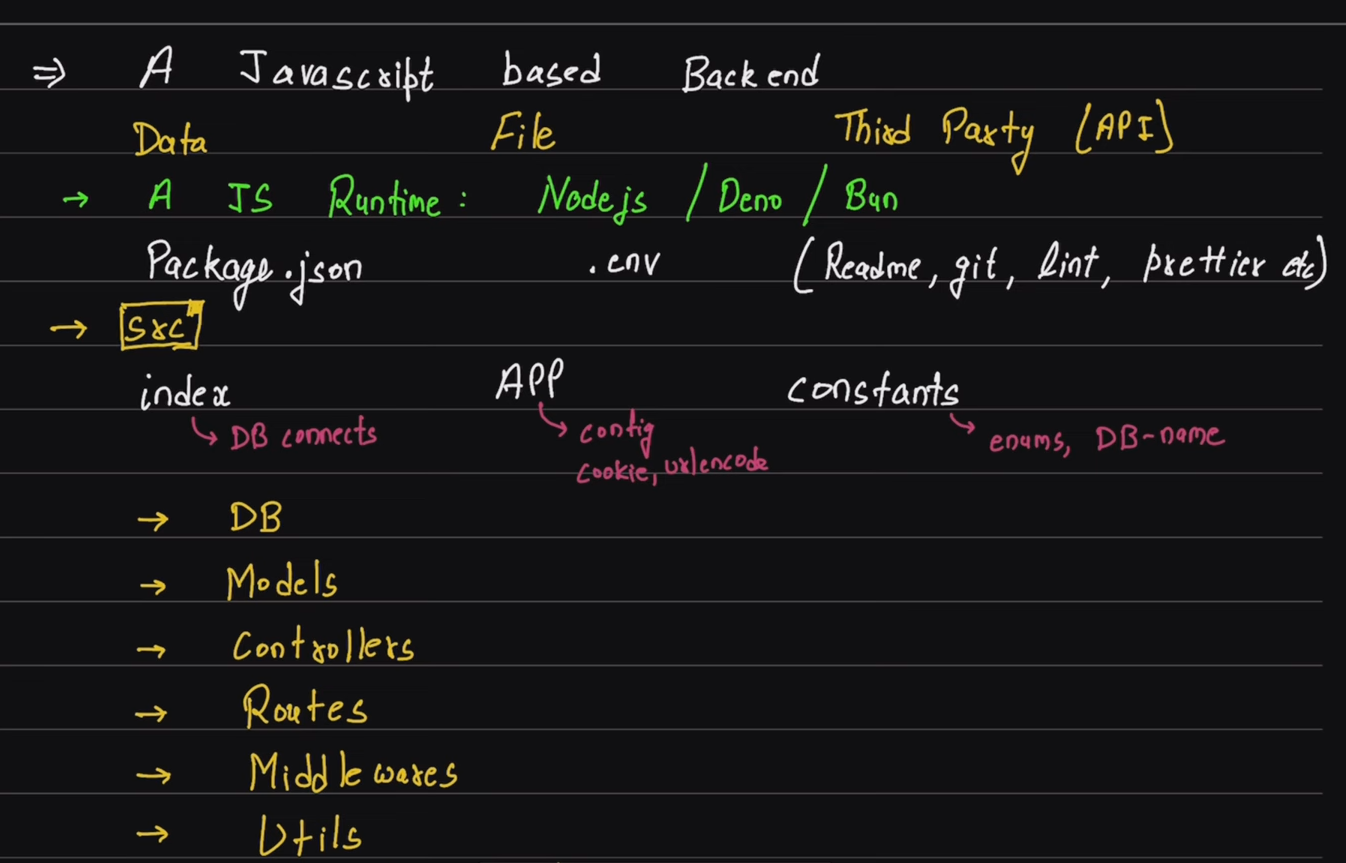 ⇒ A Javascript based Backend
Data File Third Party (API)
→ A JS Runtime: Nodejs / Deno / Bun
Package.json .env (Readme, git, lint, prettier etc)
→ src
index APP constants
↳ DB connects ↳ config ↳ enums, DB-name
cookie, urlencode
→ DB
→ Models
→ Controllers
→ Routes
→ Middlewares
→ Utils